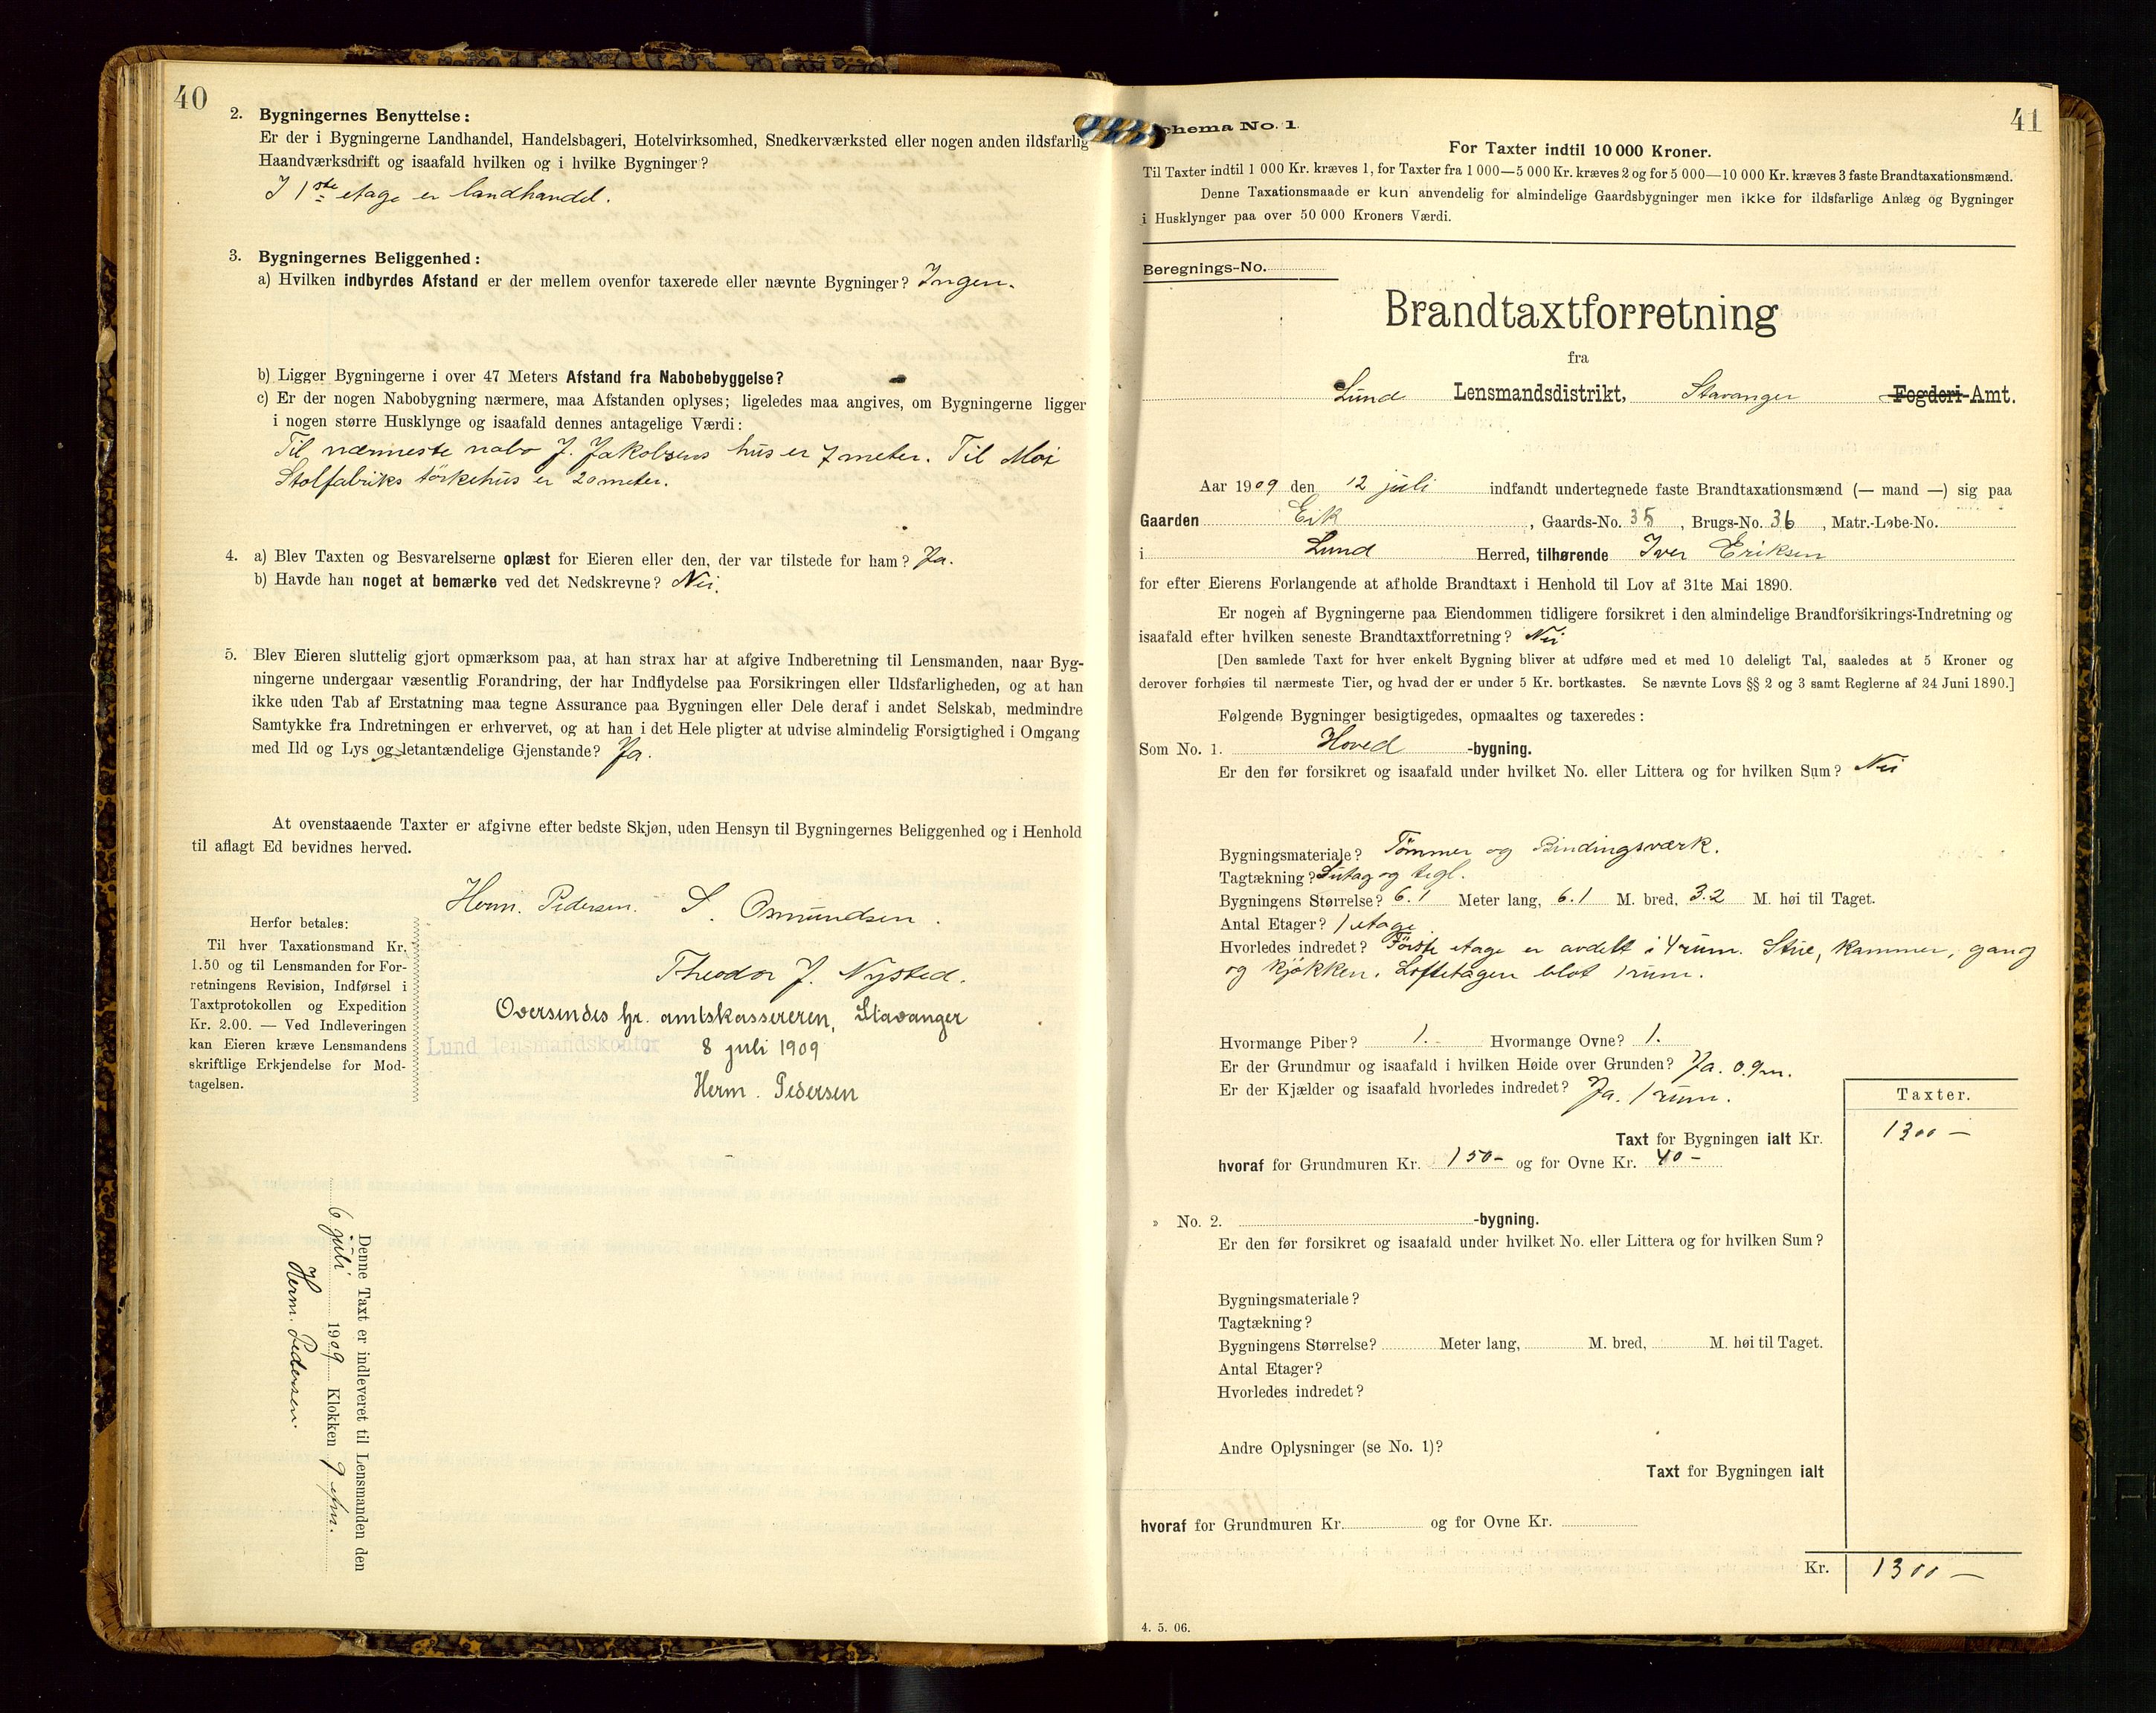 40
2. Bygningernes Benyttelse:
Er der i Bygningerne Landhandel, Handelsbageri, Hotelvirksomhed, Snedkerværksted eller nogen anden ildsfarlig
Haandværksdrift og isaafald hvilken og i hvilke Bygninger?
I 1ste etage er landhandel.
3. Bygningernes Beliggenhed:
a) Hvilken indbyrdes Afstand er der mellem ovenfor taxerede eller nævnte Bygninger? Ingen.
b) Ligger Bygningerne i over 47 Meters Afstand fra Nabobebyggelse?
c) Er der nogen Nabobygning nærmere, maa Afstanden oplyses; ligeledes maa angives, om Bygningerne ligger
i nogen større Husklynge og isaafald dennes antagelige Værdi:
Til nærmeste nabo J. Jakobsens hus er 7 meter. Til Moi
Stolfabriks tørkehus er 20 meter.
4. a) Blev Taxten og Besvarelserne oplæst for Eieren eller den, der var tilstede for ham? Ja.
b) Havde han noget at bemærke ved det Nedskrevne? Nei.
5. Blev Eieren sluttelig gjort opmærksom paa, at han strax har at afgive Indberetning til Lensmanden, naar Byg-
ningerne undergaar væsentlig Forandring, der har Indflydelse paa Forsikringen eller Ildsfarligheden, og at han
ikke uden Tab af Erstatning maa tegne Assurance paa Bygningen eller Dele deraf i andet Selskab, medmindre
Samtykke fra Indretningen er erhvervet, og at han i det Hele pligter at udvise almindelig Forsigtighed i Omgang
med Ild og Lys og letantændelige Gjenstande? Ja.
At ovenstaaende Taxter er afgivne efter bedste Skjøn, uden Hensyn til Bygningernes Beliggenhed og i Henhold
til aflagt Ed bevidnes herved.
Herm. Pedersen. S. Osmundsen.
Theodor J. Nysted.
Herfor betales:
Til hver Taxationsmand Kr.
1.50 og til Lensmanden for For-
retningens Revision, Indførsel i
Taxtprotokollen og Expedition
Kr. 2.00. — Ved Indleveringen
kan Eieren kræve Lensmandens
skriftlige Erkjendelse for Mod-
tagelsen.
Oversendes hr. amtskassereren, Stavanger
Lund lensmandskontor 8 juli 1909
Herm. Pedersen
Denne Taxt er indleveret til Lensmanden den
6 juli 1909 Klokken 9 efm.
Herm. Pedersen
41
Schema No. 1
For Taxter indtil 10 000 Kroner.
Til Taxter indtil 1 000 Kr. kræves 1, for Taxter fra 1 000—5 000 Kr. kræves 2 og for 5 000—10 000 Kr. kræves 3 faste Brandtaxationsmænd.
Denne Taxationsmaade er kun anvendelig for almindelige Gaardsbygninger men ikke for ildsfarlige Anlæg og Bygninger
i Husklynger paa over 50 000 Kroners Værdi.
Beregnings-No.
Brandtaxtforretning
fra
Lund Lensmandsdistrikt, Stavanger Fogderi-Amt.
Aar 1909 den 12 juli indfandt undertegnede faste Brandtaxationsmænd (— mand —) sig paa
Gaarden Eik, Gaards-No. 35, Brugs-No. 36, Matr.-Løbe-No.
i Lund Herred, tilhørende Iver Eriksen
for efter Eierens Forlangende at afholde Brandtaxt i Henhold til Lov af 31te Mai 1890.
Er nogen af Bygningerne paa Eiendommen tidligere forsikret i den almindelige Brandforsikrings-Indretning og
isaafald efter hvilken seneste Brandtaxtforretning? Nei
[Den samlede Taxt for hver enkelt Bygning bliver at udføre med et med 10 deleligt Tal, saaledes at 5 Kroner og
derover forhøies til nærmeste Tier, og hvad der er under 5 Kr. bortkastes. Se nævnte Lovs §§ 2 og 3 samt Reglerne af 24 Juni 1890.]
Følgende Bygninger besigtigedes, opmaaltes og taxeredes:
Som No. 1. Hoved-bygning.
Er den før forsikret og isaafald under hvilket No. eller Littera og for hvilken Sum? Nei
Bygningsmateriale? Tømmer og Bindingsværk.
Tagtækning? Sutag og tegl.
Bygningens Størrelse? 6.1 Meter lang, 6.1 M. bred, 3.2 M. høi til Taget.
Antal Etager? 1 etage.
Hvorledes indredet? Første etage er avdelt i 4 rum. Stue, kammer, gang
og kjøkken. Loftetagen blot 1 rum.
Hvormange Piber? 1. Hvormange Ovne? 1.
Er der Grundmur og isaafald i hvilken Høide over Grunden? Ja. 0.9m.
Er der Kjælder og isaafald hvorledes indredet? Ja. 1 rum.
Taxter.
Taxt for Bygningen ialt Kr. 1300 —
hvoraf for Grundmuren Kr. 150- og for Ovne Kr. 40-
» No. 2. -bygning.
Er den før forsikret og isaafald under hvilket No. eller Littera og for hvilken Sum?
Bygningsmateriale?
Tagtækning?
Bygningens Størrelse? Meter lang, M. bred, M. høi til Taget.
Antal Etager?
Hvorledes indredet?
Andre Oplysninger (se No. 1)?
Taxt for Bygningen ialt
hvoraf for Grundmuren Kr. og for Ovne Kr.
Kr. 1300 —
4. 5. 06.